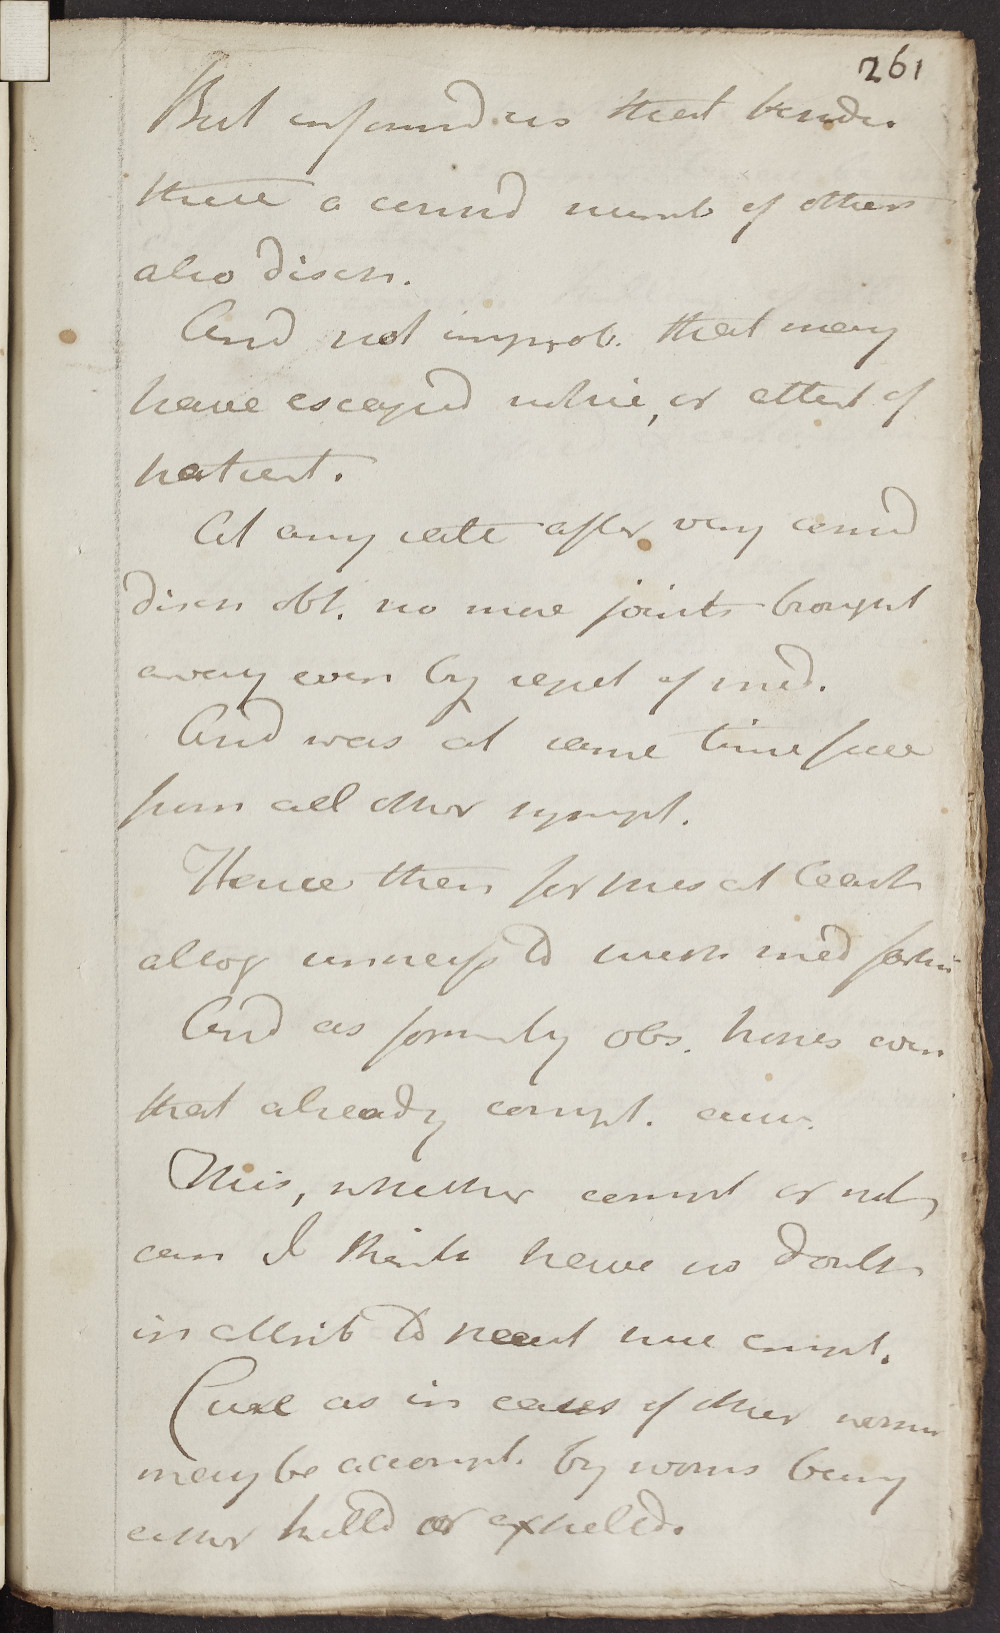 261
But informd us that besides
these a consid numb of others
also disch.
And not improb. that many
have escaped notice, or attent of
patient.
At any rate after very consid
disch obt. no more joints brought
away even by repet of med.
And was at same time free
from all other sympt.
Hence then for pres at least
altog unnecess to push med farther
And as formerly obs. hopes even
that already compt. cure.
This, whether compt or not,
can I think have no doubt
in attrib to the cure empt.
Cure as in cases of other worms
may be accompt. by worms being
either killd or expelled.